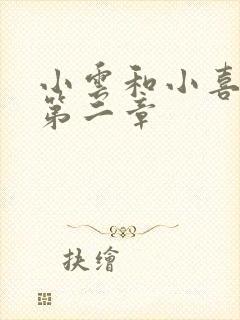 小雲和小喜
第二章
扶繪